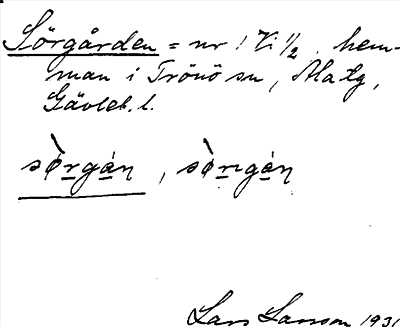 Sörgården = nr 1 Vi 1/2 hem-
man i Trönö sn, Ala tg,
Gävleb. l.
sòrgán, sòrgán
Lars Larsson 1931